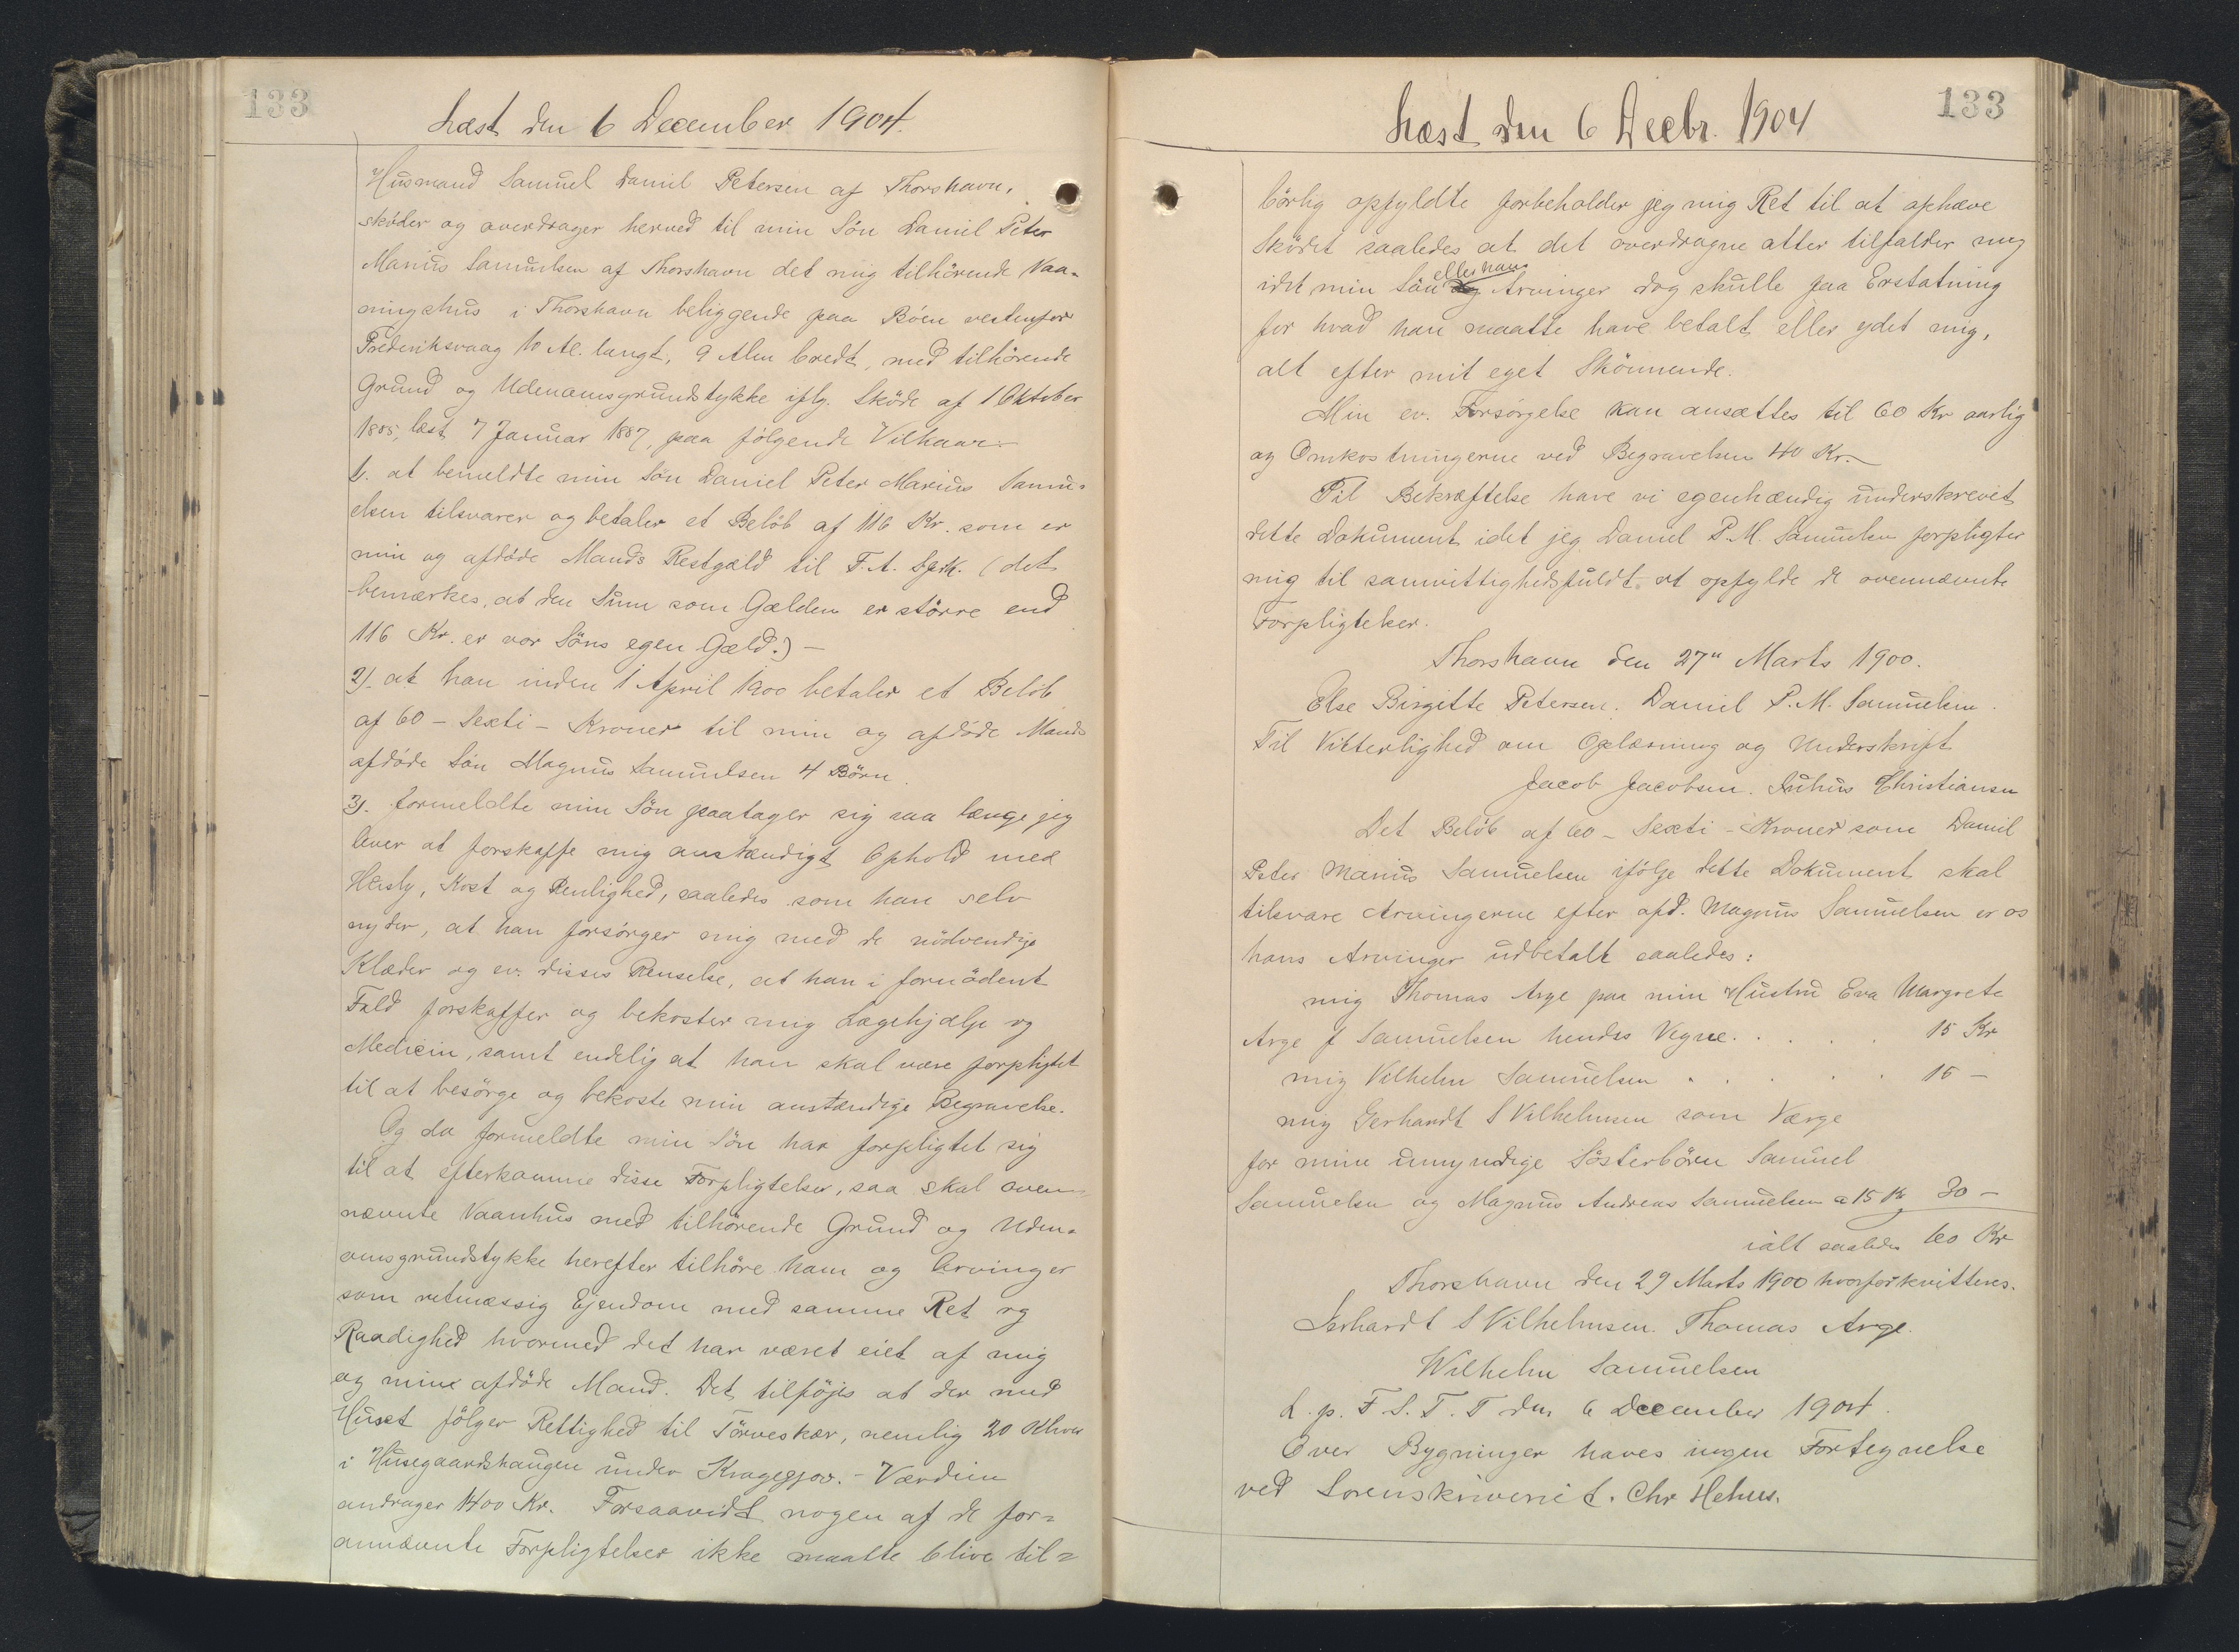 133
Læst den 6 December 1904.
Husmand Samuel Daniel Petersen af Thorshavn,
skøder og overdrager herved til min Søn Daniel Peter
Marius Samuelsen af Thorshavn det mig tilhörende Vaa-
ningshus i Thorshavn beliggende paa Böen vestenfor
Frederiksvaag 10 Al. langt, 9 Alen bredt, med tilhörende
Grund og Udenomsgrundstykke iflg. Sköde af 1 Oktober
1885, læst 7 Januar 1887, paa fölgende Vilkaar:
1. at bemeldte min Sön Daniel Peter Marius Samu-
elsen tilsvarer og betaler et Belöb af 116 Kr. som er
min og afdöde Mands Restgæld til F. A. Spk. (det
bemærkes, at den Sum som Gælden er större end
116 Kr. er vor Söns egen Gæld.) -
2). at han inden 1 April 1900 betaler et Belöb
af 60 - Sexti - Kroner til min og afdöde Mands
afdöde Sön Magnus Samuelsen 4 Börn.
3). formeldte min Sön paatager sig saa længe jeg
lever at forskaffe mig anstændigt Ophold med
Husly, Kost og Renlighed, saaledes som han selv
nyder, at han forsörger mig med de nödvendige
Klæder og ev. disses Renselse, at han i fornödent
Fald forskaffer og bekoster mig Lægehjælp og
Medicin, samt endelig at han skal være forpligtet
til at besörge og bekoste min anstændige Begravelse.
Og da formeldte min Sön har forpligtet sig
til at efterkomme disse Forpligtelser, saa skal oven-
nævnte Vaanhus med tilhörende Grund og Uden-
omsgrundstykke herefter tilhöre ham og Arvinger
som retmæssig Ejendom med samme Ret og
Raadighed hvormed det har været eiet af mig
og mine afdöde Mand. Det tilföjes at der med
Huset fölger Rettighed til Törveskær, nemlig 20
i Husegaardshaugen under Kragegjov. - Værdien
andrager 1400 Kr. Forsaavidt nogen af de for=
annævnte Forpligtelser ikke maatte blive til=
133
Læst den 6 Decbr. 1904
börlig opfyldte forbeholder jeg mig Ret til at ophæve
Sködet saaledes at det overdragne atter tilfalder mig
idet min Sön og eller hans Arvinger dog skulle faa Erstatning
for hvad han maatte have betalt eller ydet mig,
alt efter mit eget Skönnende.
Min ev. Forsörgelse kan ansættes til 60 Kr aarlig
og Omkostningerne ved Begravelsen 40 Kr.
Til Bekræftelse have vi egenhændig underskrevet
dette Dokument idet jeg Daniel P. M. Samuelsen forpligter
mig til samvittighedsfuldt at opfylde de ovennævnte
Forpligtelser.
Thorshavn den 27" Marts 1900.
Else Birgitte Petersen. Daniel P. M. Samuelsen.
Til Vitterlighed om Oplæsning og Underskrift
Jacob Jacobsen. Julius Christiansen
Det Belöb af 60 - Sexti - Kroner som Daniel
Peter Marius Samuelsen ifölge dette Dokument skal
tilsvare Arvingerne efter afd. Magnus Samuelsen er os
hans Arvinger udbetalt saaledes:
mig Thomas Arge paa min Hustru Eva Margrete
Arge f Samuelsen hendes Vegne. . . . . . 15 Kr
mig Vilhelm Samuelsen . . . . . 15 -
mig Gerhardt S Vilhelmsen som Værge
for mine umyndige Sösterbörn Samuel
Samuelsen og Magnus Andreas Samuelsen a 15 Kr 30 -
ialt saaledes 60 Kr
Thorshavn den 29 Marts 1900 hvorfor kvitteres.
Gerhardt S Vilhelmsen. Thomas Arge.
Wilhelm Samuelsen
L. p. F S. T. T den 6 December 1904.
Over Bygninger haves ingen Fortegnelse
ved Sorenskriveriet. Chr